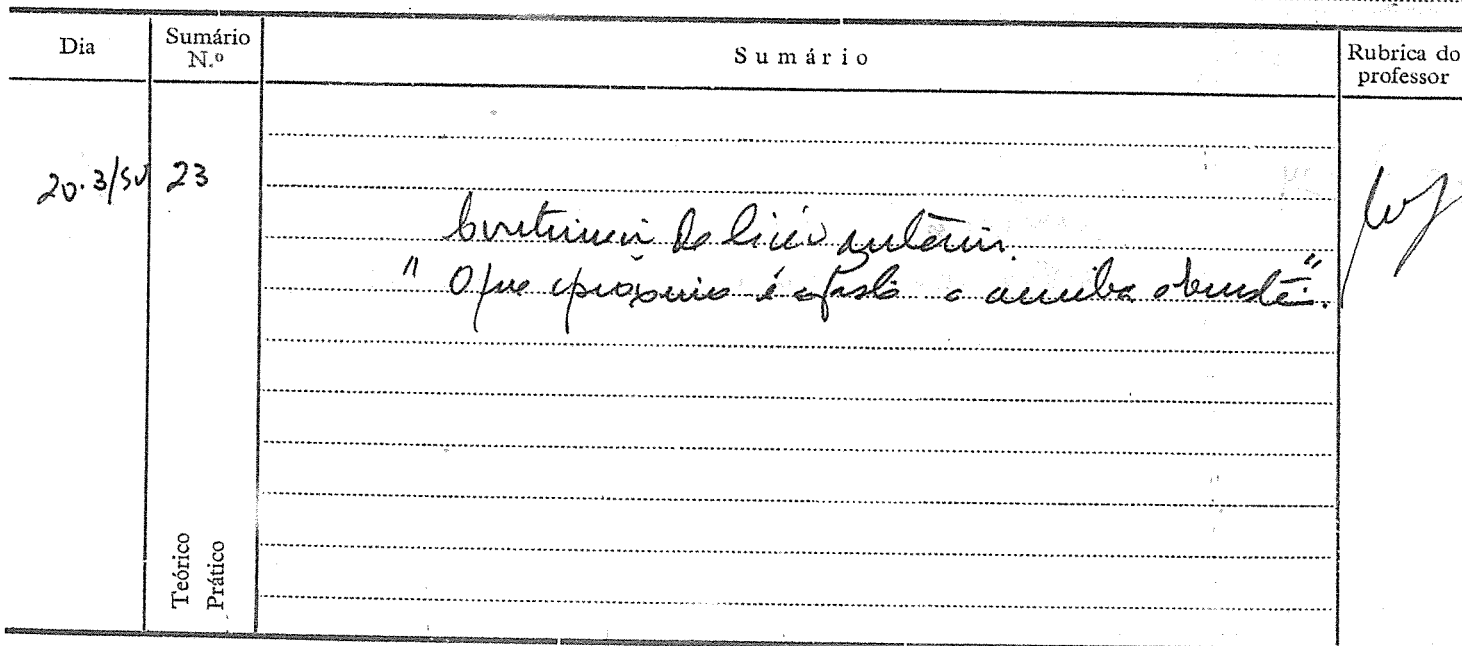 Dia
Sumário N.º
Sumário
Rubrica do professor
20.3/50 23
Continuação da lição anterior.
" O que aproxima é afasta a "
Teórico
Prático